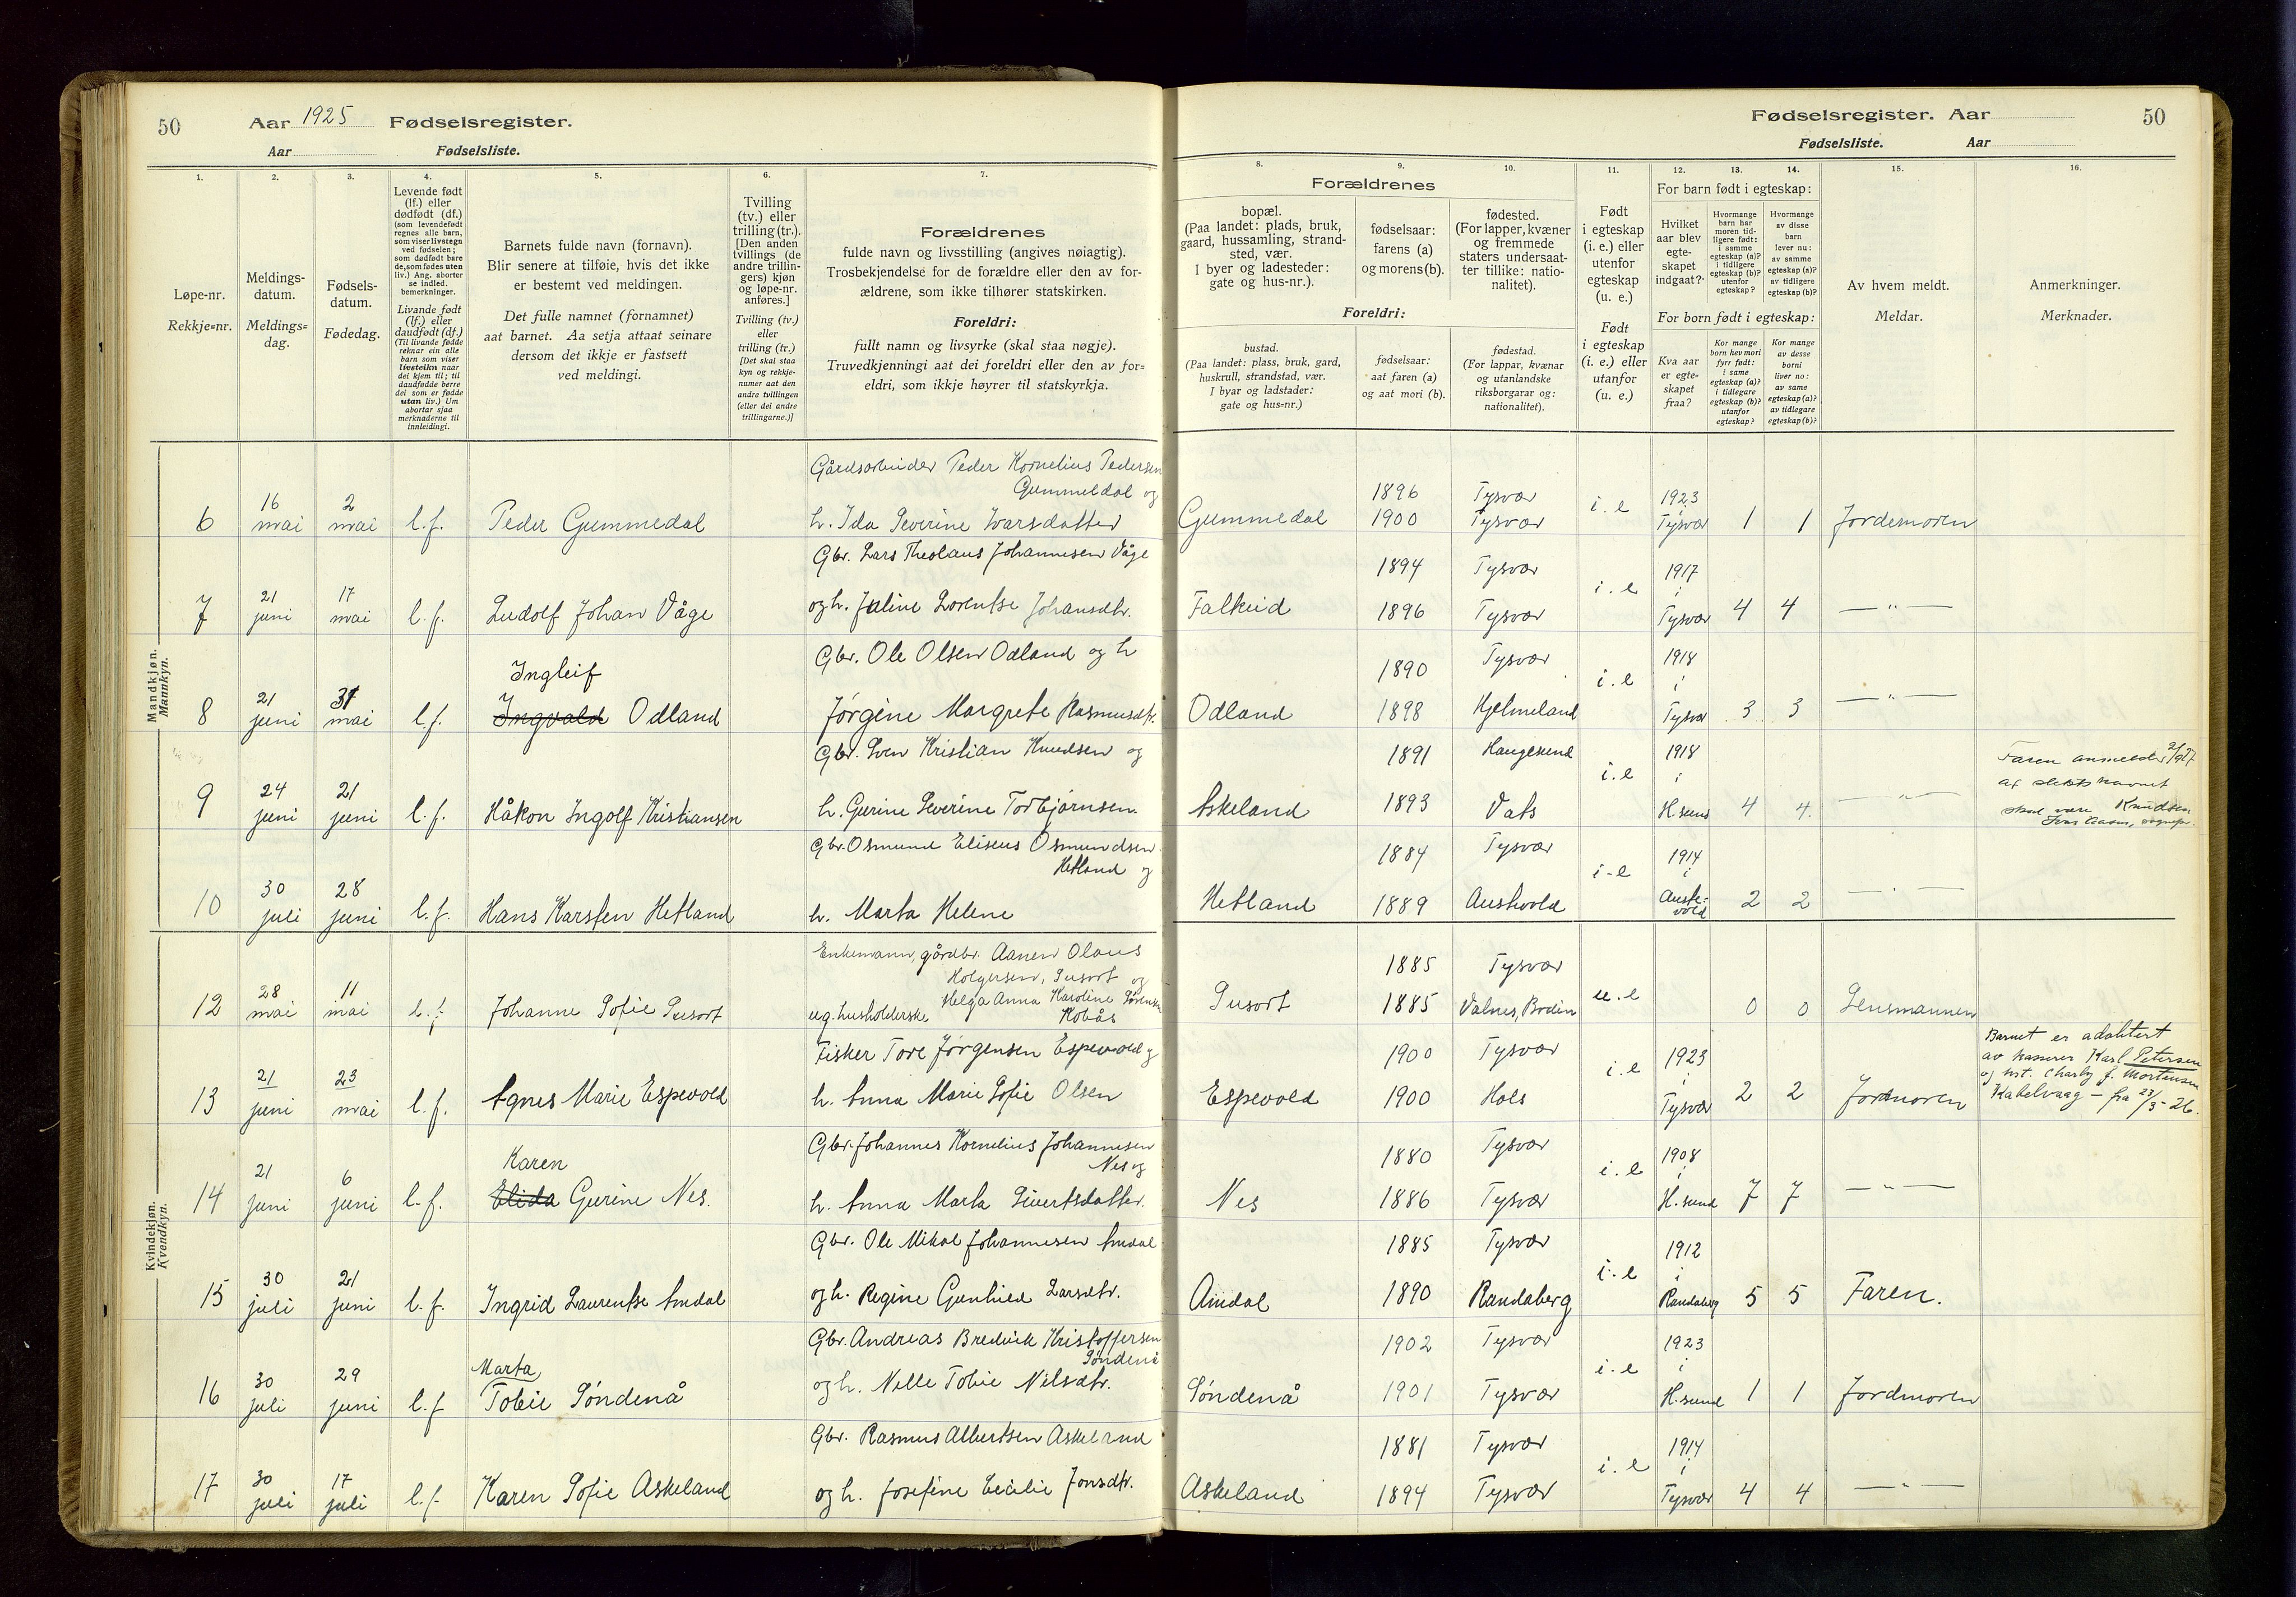 50 Aar 1925 Fødselsregister.
Aar Fødselsliste.
Fødselsregister. Aar 50
Fødselsliste. Aar
1. 2. 3. 4. 5. 6. 7.
Løpe-nr.
Rekkje=nr.
Meldings-
datum.
Meldings=
dag.
Fødsels-
datum.
Fødedag.
Levende født
(lf.) eller
dødfødt (df.)
(som levendefødt
regnes alle barn,
som viser livstegn
ved fødselen;
som dødfødt bare
de, som fødes uten
liv.) Ang. aborter
se indled.
bemerkninger.
Livande født
(lf.) eller
daudfødt (df.)
(Til livande fødde
reknar ein alle
barn som viser
livsteikn naar
dei kjem til; til
daudfødde berre
dei som er fødde
utan liv.) Um
abortar sjaa
merknaderne til
innleidingi.
Barnets fulde navn (fornavn).
Blir senere at tilføie, hvis det ikke
er bestemt ved meldingen.
Det fulle namnet (fornamnet)
aat barnet. Aa setja attaat seinare
dersom det ikkje er fastsett
ved meldingi.
Tvilling
(tv.) eller
trilling (tr.).
[Den anden
tvillings (de
andre trillin-
gers) kjøn
og løpe-nr.
anføres.]
Tvilling (tv.)
eller
trilling (tr.)
[Det skal staa
kyn og rekkje-
numer aat den
andre tvillingen
(eller dei andre
trillingarne.)]
Forældrenes
fulde navn og livsstilling (angives nøiagtig).
Trosbekjendelse for de forældre eller den av for-
ældrene, som ikke tilhører statskirken.
Foreldri:
fullt namn og livsyrke (skal staa nøgje).
Truvedkjenningi aat dei foreldri eller den av for=
eldri, som ikkje høyrer til statskyrkja.
8. 9. 10. 11. 12. 13. 14. 15. 16.
Forældrenes
bopæl.
(Paa landet: plads, bruk,
gaard, hussamling, strand-
sted, vær.
I byer og ladesteder:
gate og hus-nr.).
fødselsaar:
farens (a)
og morens (b).
fødested.
(For lapper, kvæner
og fremmede
staters undersaat-
ter tillike: natio-
nalitet).
Foreldri:
bustad.
(Paa landet: plass, bruk, gard,
huskrull, strandstad, vær.
I byar og ladstader:
gate og hus-nr.)
fødselsaar:
aat faren (a)
og aat mori (b).
fødestad.
(For lappar, kvænar
og utanlandske
riksborgarar og:
nationalitet).
Født
i egteskap
(i. e.) eller
utenfor
egteskap
(u. e.)
Født
i egteskap
(i. e.) eller
utanfor
(u. e.)
For barn født i egteskap:
Hvilket
aar blev
egte-
skapet
indgaat?
Hvormange
barn har
moren tid-
ligere født:
i samme
egteskap (a)?
i tidligere
egteskap (b)?
utenfor
egteskap?
Hvormange
av disse
barn
lever nu:
av samme
egteskap (a)?
av tidligere
egteskap (b)?
For born født i egteskap:
Kva aar
er egte=
skapet
fraa?
Kor mange
born hev mori
fyrr født:
i same
egteskap (a)?
i tidlegare
egteskap (b)?
utanfor
egteskap?
Kor mange
av desse
borni
liver no:
av same
egteskap (a)?
av tidlegare
egteskap (b)?
Av hvem meldt.
Meldar.
Anmerkninger.
Merknader.
Mandkjøn.
Mannkyn.
Gårdsarbeider Peder Kornelius Pedersen
Gummeldal og
6 16 mai 2 mai l.f. Peder Gummedal h. Ida Severine Ivarsdatter Gummedal 1896 1900 Tysvær Tysvær i.e 1923 i Tysvær 1 1 Jordemoren
Gbr. Lars Theolaus Johannesen Våge
7 21 juni 17 mai l.f. Ludolf Johan Våge og h. Juline Lorentse Johansdtr. Falkeid 1894 1896 Tysvær Tysvær i.e 1917 i Tysvær 4 4 — " —
Gbr. Ole Olsen Odland og h
Ingleif
8 21 juni 31 mai l.f. Ingvald Odland Jørgine Margrete Rasmusdtr. Odland 1890 1898 Tysvær Hjelmeland i.e 1918 i Tysvær 3 3 — " —
Gbr. Sven Kristian Knudsen og
9 24 juni 21 juni l.f. Håkon Ingolf Kristiansen h. Gurine Severine Torbjørnsen. Askeland 1891 1893 Haugesund Vats i.e 1918 i H.sund 4 4. — " —
Faren anmelder
at slektsnavnet
skal være Knudsen.
Gbr. Osmund Eliseus Osmundsen
Hetland og
10 30 juli 28 juni l.f. Hans Karsten Hetland h. Marta Helene Hetland 1884 1889 Tysvær Austevold i-e 1914 i Auste-
vold 2 2 — " —
Kvindekjøn.
Kvendkyn.
Enkemann, gårdbr. Aanen Olaus
Holgersen, Susort og
Helga Anna Karoline Sørensen
12 28 mai 11 mai l.f. Johanne Sofie Susort ug. husholderske Kobås Susort 1885 1885 Tysvær Valnes, Bodin u.e 0 0 Lensmannen
Fisker Tore Jørgensen Espevold og
13 21 juni 23 mai l.f. Agnes Marie Espevold h. Anna Marie Sofie Olsen Espevold 1900 1900 Tysvær Hols i.e 1923 i Tysvær 2 2 Jordmoren
Barnet er adoptert
av kasserer Karl Petersen
og hst. Charly f. Mortensen
Kabelvaag – fra 23/3-26.
Gbr. Johannes Kornelius Johannesen
Nes og
Karen
14 21 juni 6 juni l.f. Elida Gurine Nes. h. Anna Marta Sivertsdatter. Nes 1880 1886 Tysvær Tysvær i.e 1908 i H.sund 7 7 — " —
Gbr. Ole Mikal Johannesen Amdal
15 30 juli 21 juni l.f. Ingrid Laurentse Amdal og h. Regine Gunhild Larsdtr. Amdal 1885 1890 Tysvær Randaberg i.e 1912 i Randaberg 5 5 Faren.
Gbr. Andreas Bredvik Kristoffersen
Søndenå
Marta
16 30 juli 29 juni l.f Tobie Søndenå og h. Nelle Tobie Nilsdtr. Søndenå 1902 1901 Tysvær Tysvær i.e 1923 i H.sund 1 1 Jordmoren
Gbr. Rasmus Albertsen Askeland
17 30 juli 17 juli l.f. Karen Sofie Askeland og h. Josefine Cecilie Jonsdtr. Askeland 1881 1894 Tysvær Tysvær i.e 1914 i Tysvær 4 4 — " —